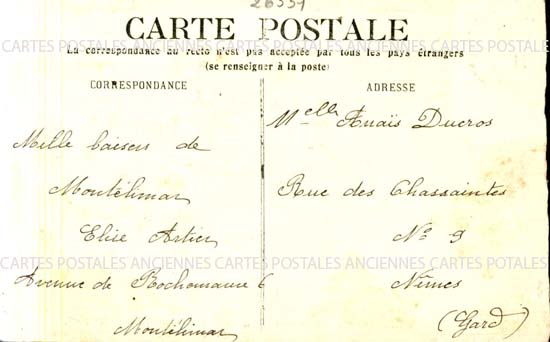 26559
CARTE POSTALE
La correspondance au recto n'est pas acceptée par tous les pays étrangers
(se renseigner à la poste)
CORRESPONDANCE
Mille baisers de
Montélimar
Elise Artier
Avenue de Rochemaure 6
Montélimar
ADRESSE
Melle Anaïs Ducros
Rue des Chassaintes
No 9
Nîmes
(Gard)
CARTES POSTALES ANCIENNES CARTES POSTALES ANCIENNES CARTES POTALES
CARTES POSTALES ANCIENNES CARTES POSTALES ANCIENNES CARTES POTALES